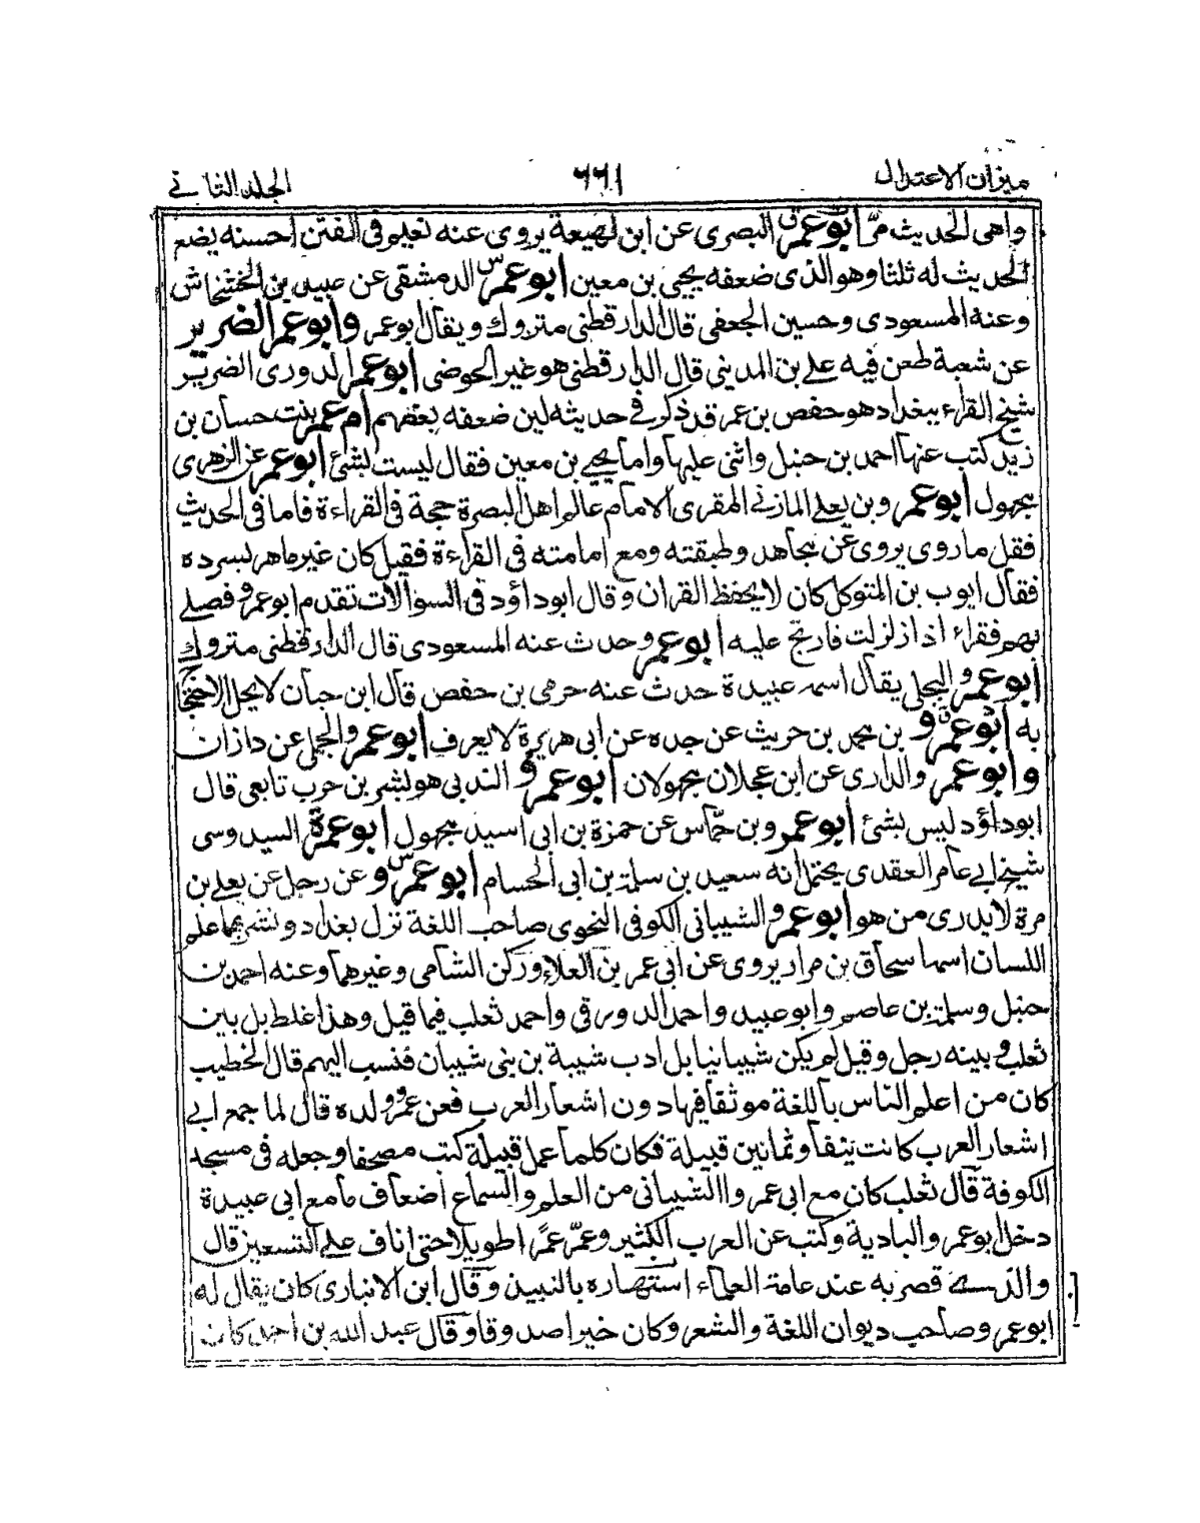 ميزان الاعتدال ٦٦١ الجلد الثاني
واهى الحديث مرّ ابو عمر ق البصرى عن ابن لهيعة يروى عنه نعيم فى الفتن احسنه يضع
الحديث له ثلثا وهو الذى ضعفه يحيى بن معين ابو عمر س الدمشقى عن عبيد بن الخشخاش
وعنه المسعودى وحسين الجعفى قال الدارقطنى متروك ويقال ابو عمرو ابو عمر الضرير
عن شعبة طعن فيه على بن المدينى قال الدارقطنى هو غير الحوضى ابو عمر الدورى الضرير
شيخ القراء ببغداد هو حفص بن عمر قد ذكر فى حديثه لين ضعفه بعضهم ام عمر بنت حسان بن
زيد كتب عنها احمد بن حنبل واثنى عليها واما يحيى بن معين فقال ليست بشئ ابو عمر عن الزهرى
مجهول ابو عمر وبن يعلى المازنى المقرى الامام عالم اهل البصرة حجة فى القراءة فاما فى الحديث
فقل ما روى يروى عن مجاهد وطبقته ومع امامته فى القراءة فقيل كان غير ماهر بسرده
فقال ايوب بن المتوكل كان لا يحفظ القران وقال ابو داؤد فى السوالات تقدم ابو عمرو فصلى
بهم فقراء اذا زلزلت فارتج عليه ابو عمرو حدث عنه المسعودى قال الدارقطنى متروك
ابو عمرو البجلى يقال اسمه عبيدة حدث عنه حرمى بن حفص قال ابن حبان لا يحل الاحتجاج
به ابو عمرو ق بن محمد بن حريث عن جده عن ابى هريرة لا يعرف ابو عمرو الجملى عن داذان
وابو عمرو والدارى عن ابن عجلان مجهولان ابو عمرو ق الندبى هو بشر بن حرب تابعى قال
ابو داؤد ليس بشئ ابو عمرو بن حماس عن حمزة بن ابى اسيد مجهول ابو عمرة السيدوسى
شيخ ابى عامر العقدى يحتمل انه سعيد بن سلمة بن ابى الحسام ابو عمرو س عن رجل عن يعلى بن
مرة لا يدرى من هو ابو عمرو الشيبانى الكوفى النحوى صاحب اللغة نزل بغداد ونشر بها علم
اللسان اسمه اسحاق بن مرار يروى عن ابى عمر بن العلاء وركن الشامى وغيرهما وعنه احمد بن
حنبل وسلمة بن عاصم وابو عبيد واحمد الدورقى واحمد ثعلب فيما قيل وهذا غلط بل بين
ثعلب وبينه رجل وقيل لم يكن شيبانيا بل ادب شيبة بن بنى شيبان فنسب اليهم قال الخطيب
كان من اعلم الناس باللغة موثقا فيها دون اشعار العرب فعن عمرو ولده قال لما جمع ابى
اشعار العرب كانت ينفا وثمانين قبيلة فكان كلما عمل قبيلة كتب مصحفا وجعله فى مسجد
الكوفة قال ثعلب كان مع ابى عمر واالشيبانى من العلم والسماع اضعاف ما مع ابى عبيدة
دخل ابو عمر والبادية وكتب عن العرب الكثير وعمّر عمرا طويلا حتى اناف على التسعين قال
والذى قصر به عند عامة العلماء اشتهاره بالنبيذ وقال ابن الانبارى كان يقال له
ابو عمر وصاحب ديوان اللغة والشعر وكان خيرا صدوقا وقال عبد الله بن احمد كان